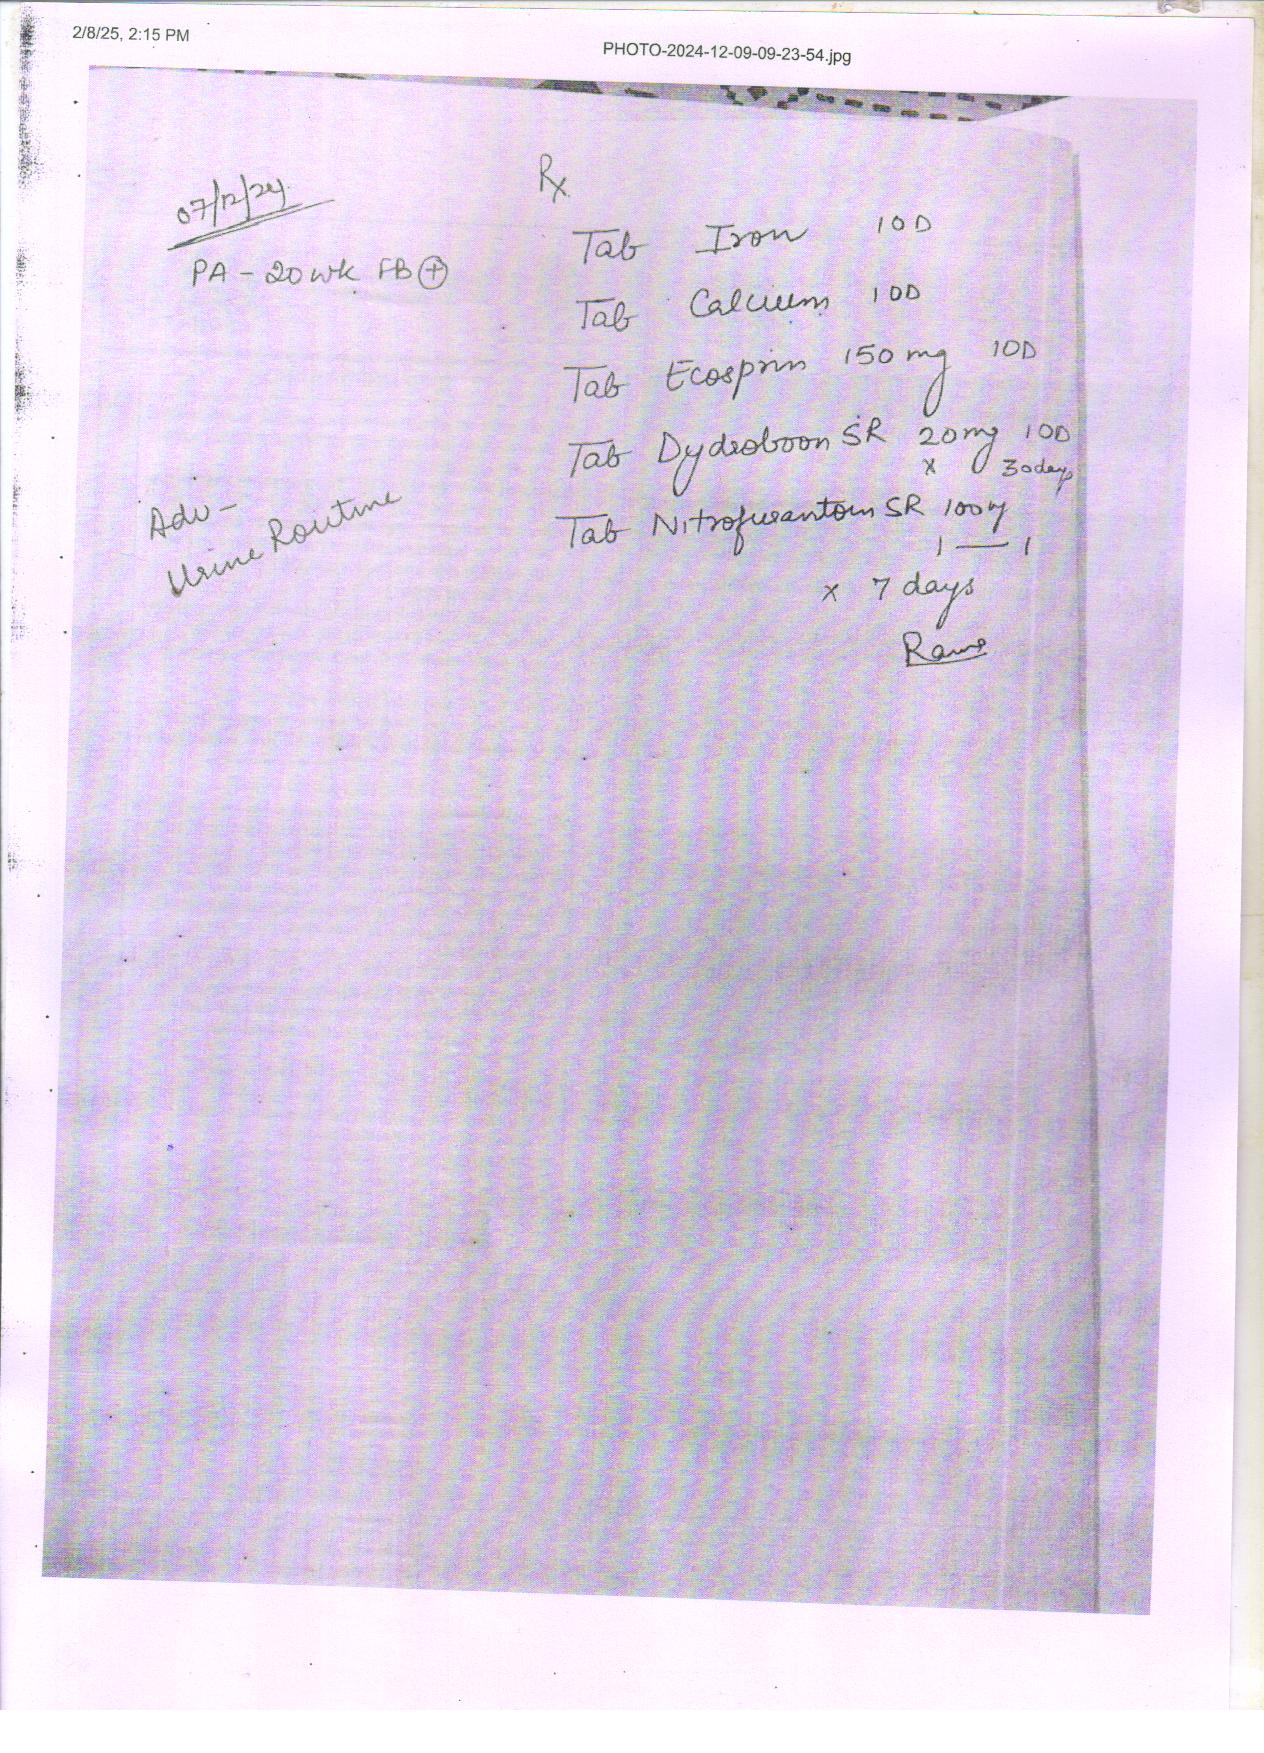 2/8/25, 2:15 PM
PHOTO-2024-12-09-09-23-54.jpg
07/12/24
PA - 20 wk FB ⊕
Rx
Tab Iron 1OD
Tab Calcium 1OD
Tab Ecosprin 150 mg 1OD
Tab Dydroboon SR 20mg 1OD
x 30days
Adv -
Urine Routine
Tab Nitrofurantoin SR 100mg
1 — 1
x 7 days